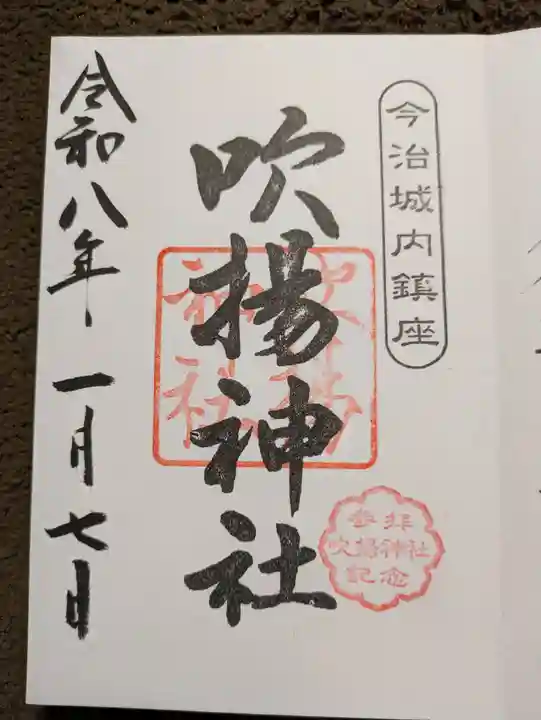 今治城内鎮座
吹揚神社
吹揚
神社
参拝
吹揚神社
記念
令和八年一月七日